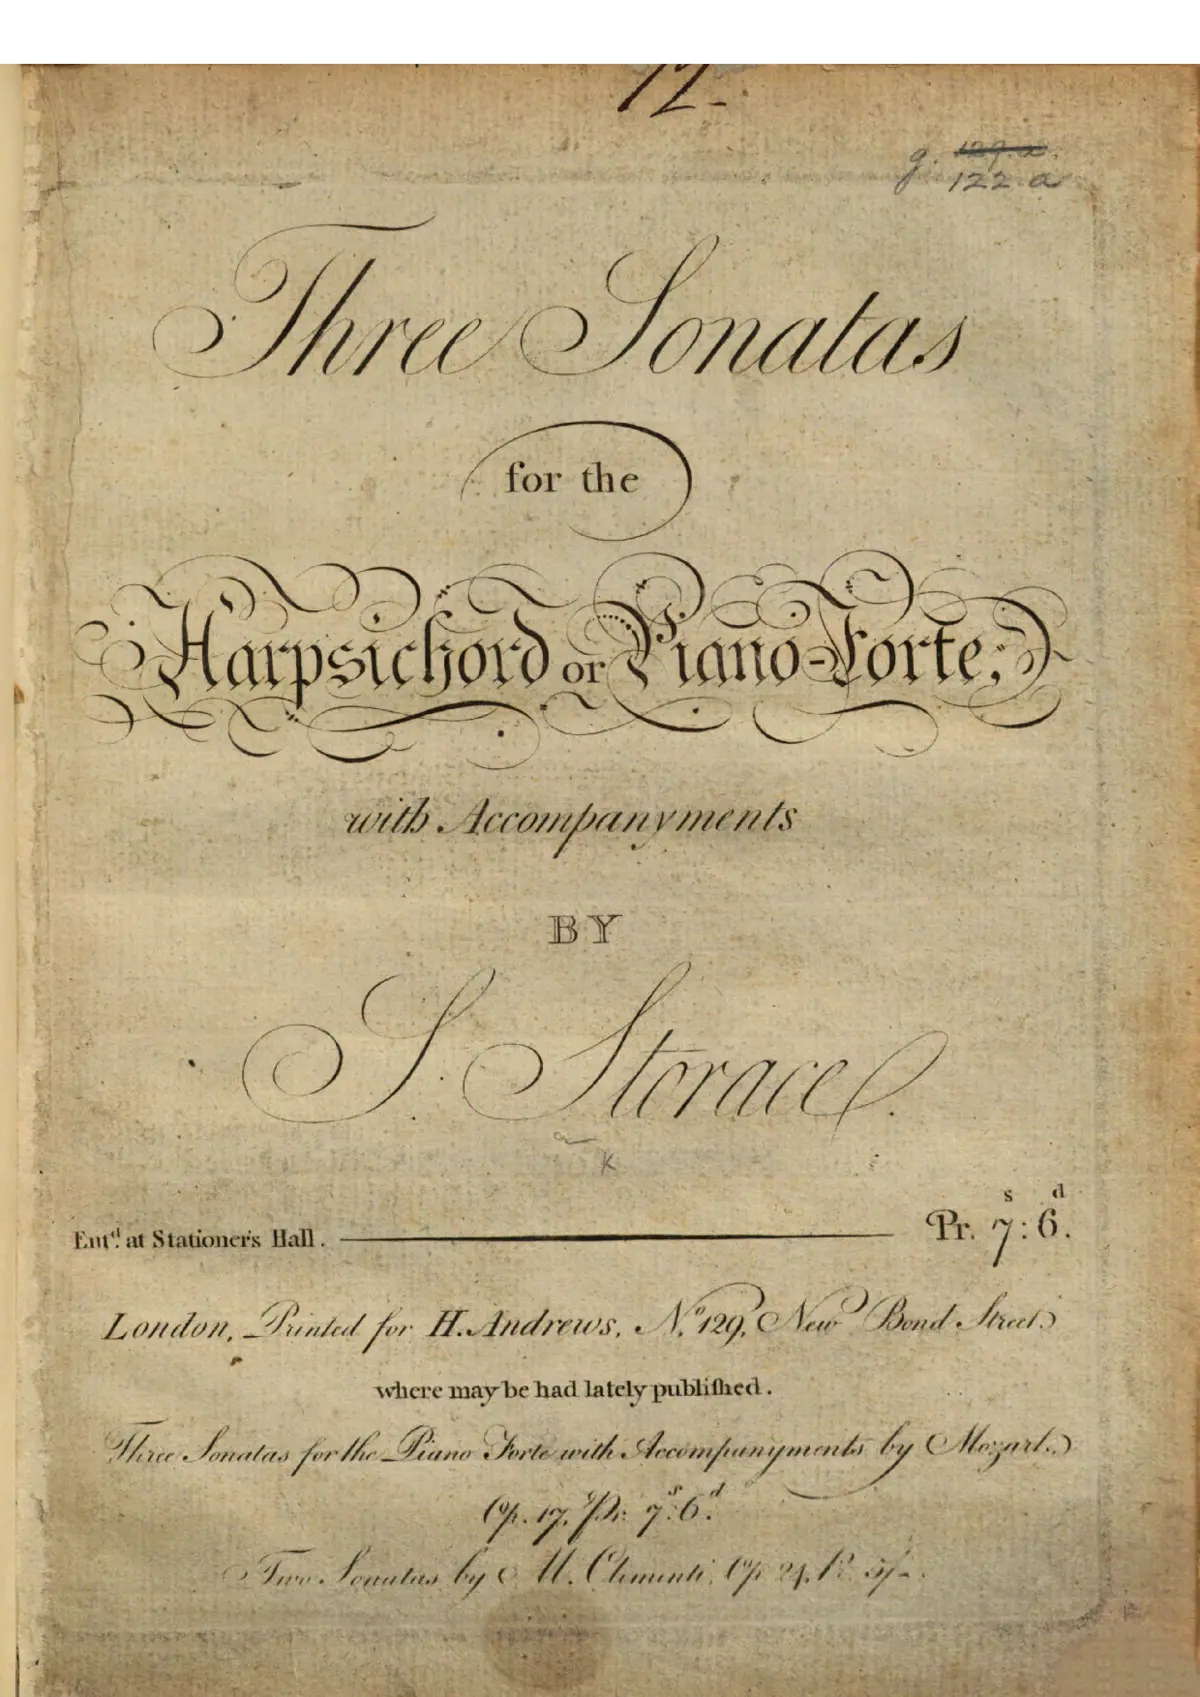 12-
g. 129.a.
122.a
Three Sonatas
for the
Harpsichord or Piano-Forte,
with Accompanyments
BY
S. Storace.
K
s d
Ent.d at Stationer's Hall. Pr. 7:6.
London, Printed for H. Andrews, No. 129, New Bond Street.
where may be had lately publiſhed.
Three Sonatas for the Piano Forte with Accompanyments by Mozart.
Op. 17. Pr. 7s:6d.
Two Sonatas by M. Clementi. Op 24. Pr. 5/-.